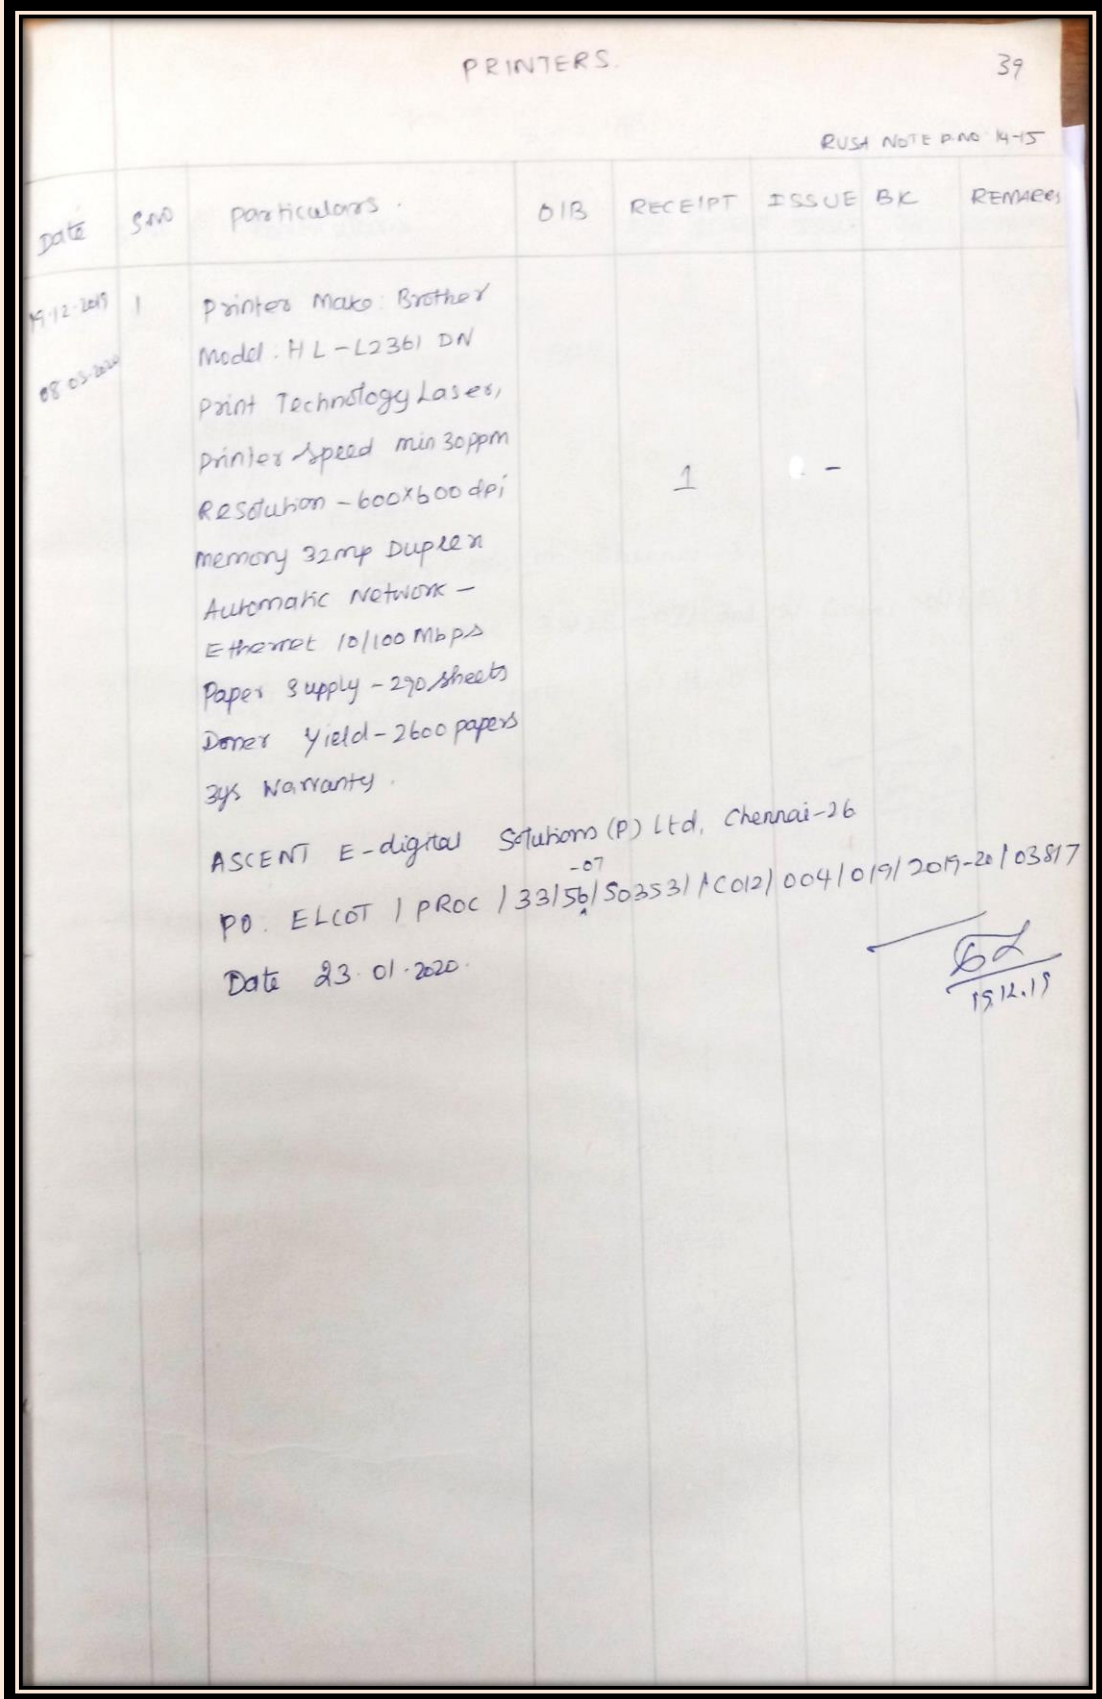 PRINTERS.
39
RUSA NOTE P.NO 14-15
Date S.NO Particulars. O/B RECEIPT ISSUE BK REMARKS
19-12-2019 1 Printer Make: Brother
08-03-2020 Model: HL-L2361 DN
Print Technology Laser,
Printer speed min 30ppm
Resolution - 600x600 dpi 1 -
Memory 32mp Duplex
Automatic Network -
Ethernet 10/100 Mbps
Paper Supply - 290 sheets
Doner Yield - 2600 papers
3ys Warranty.
ASCENT E-digital Solutions (P) Ltd, Chennai-26
-07
PO: ELCOT / PROC / 33/56/S03531/ACO12/004/019/2019-20/03817
Date 23.01.2020.
19.12.19